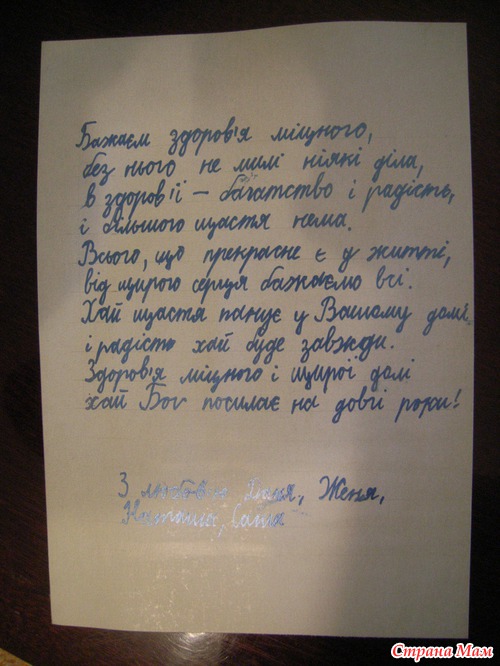 Бажаєм здоров'я міцного,
без нього не милі ніякі діла,
в здоров'ї — багатство і радість,
і більшого щастя нема.
Всього, що прекрасне є у житті,
від щирого серця бажаємо всі.
Хай щастя панує у Вашому домі,
і радість хай буде завжди.
Здоров'я міцного і щирої долі
хай Бог посилає на довгі роки!
З любов'ю Женя,
Наташа, Саша
Страна Мам